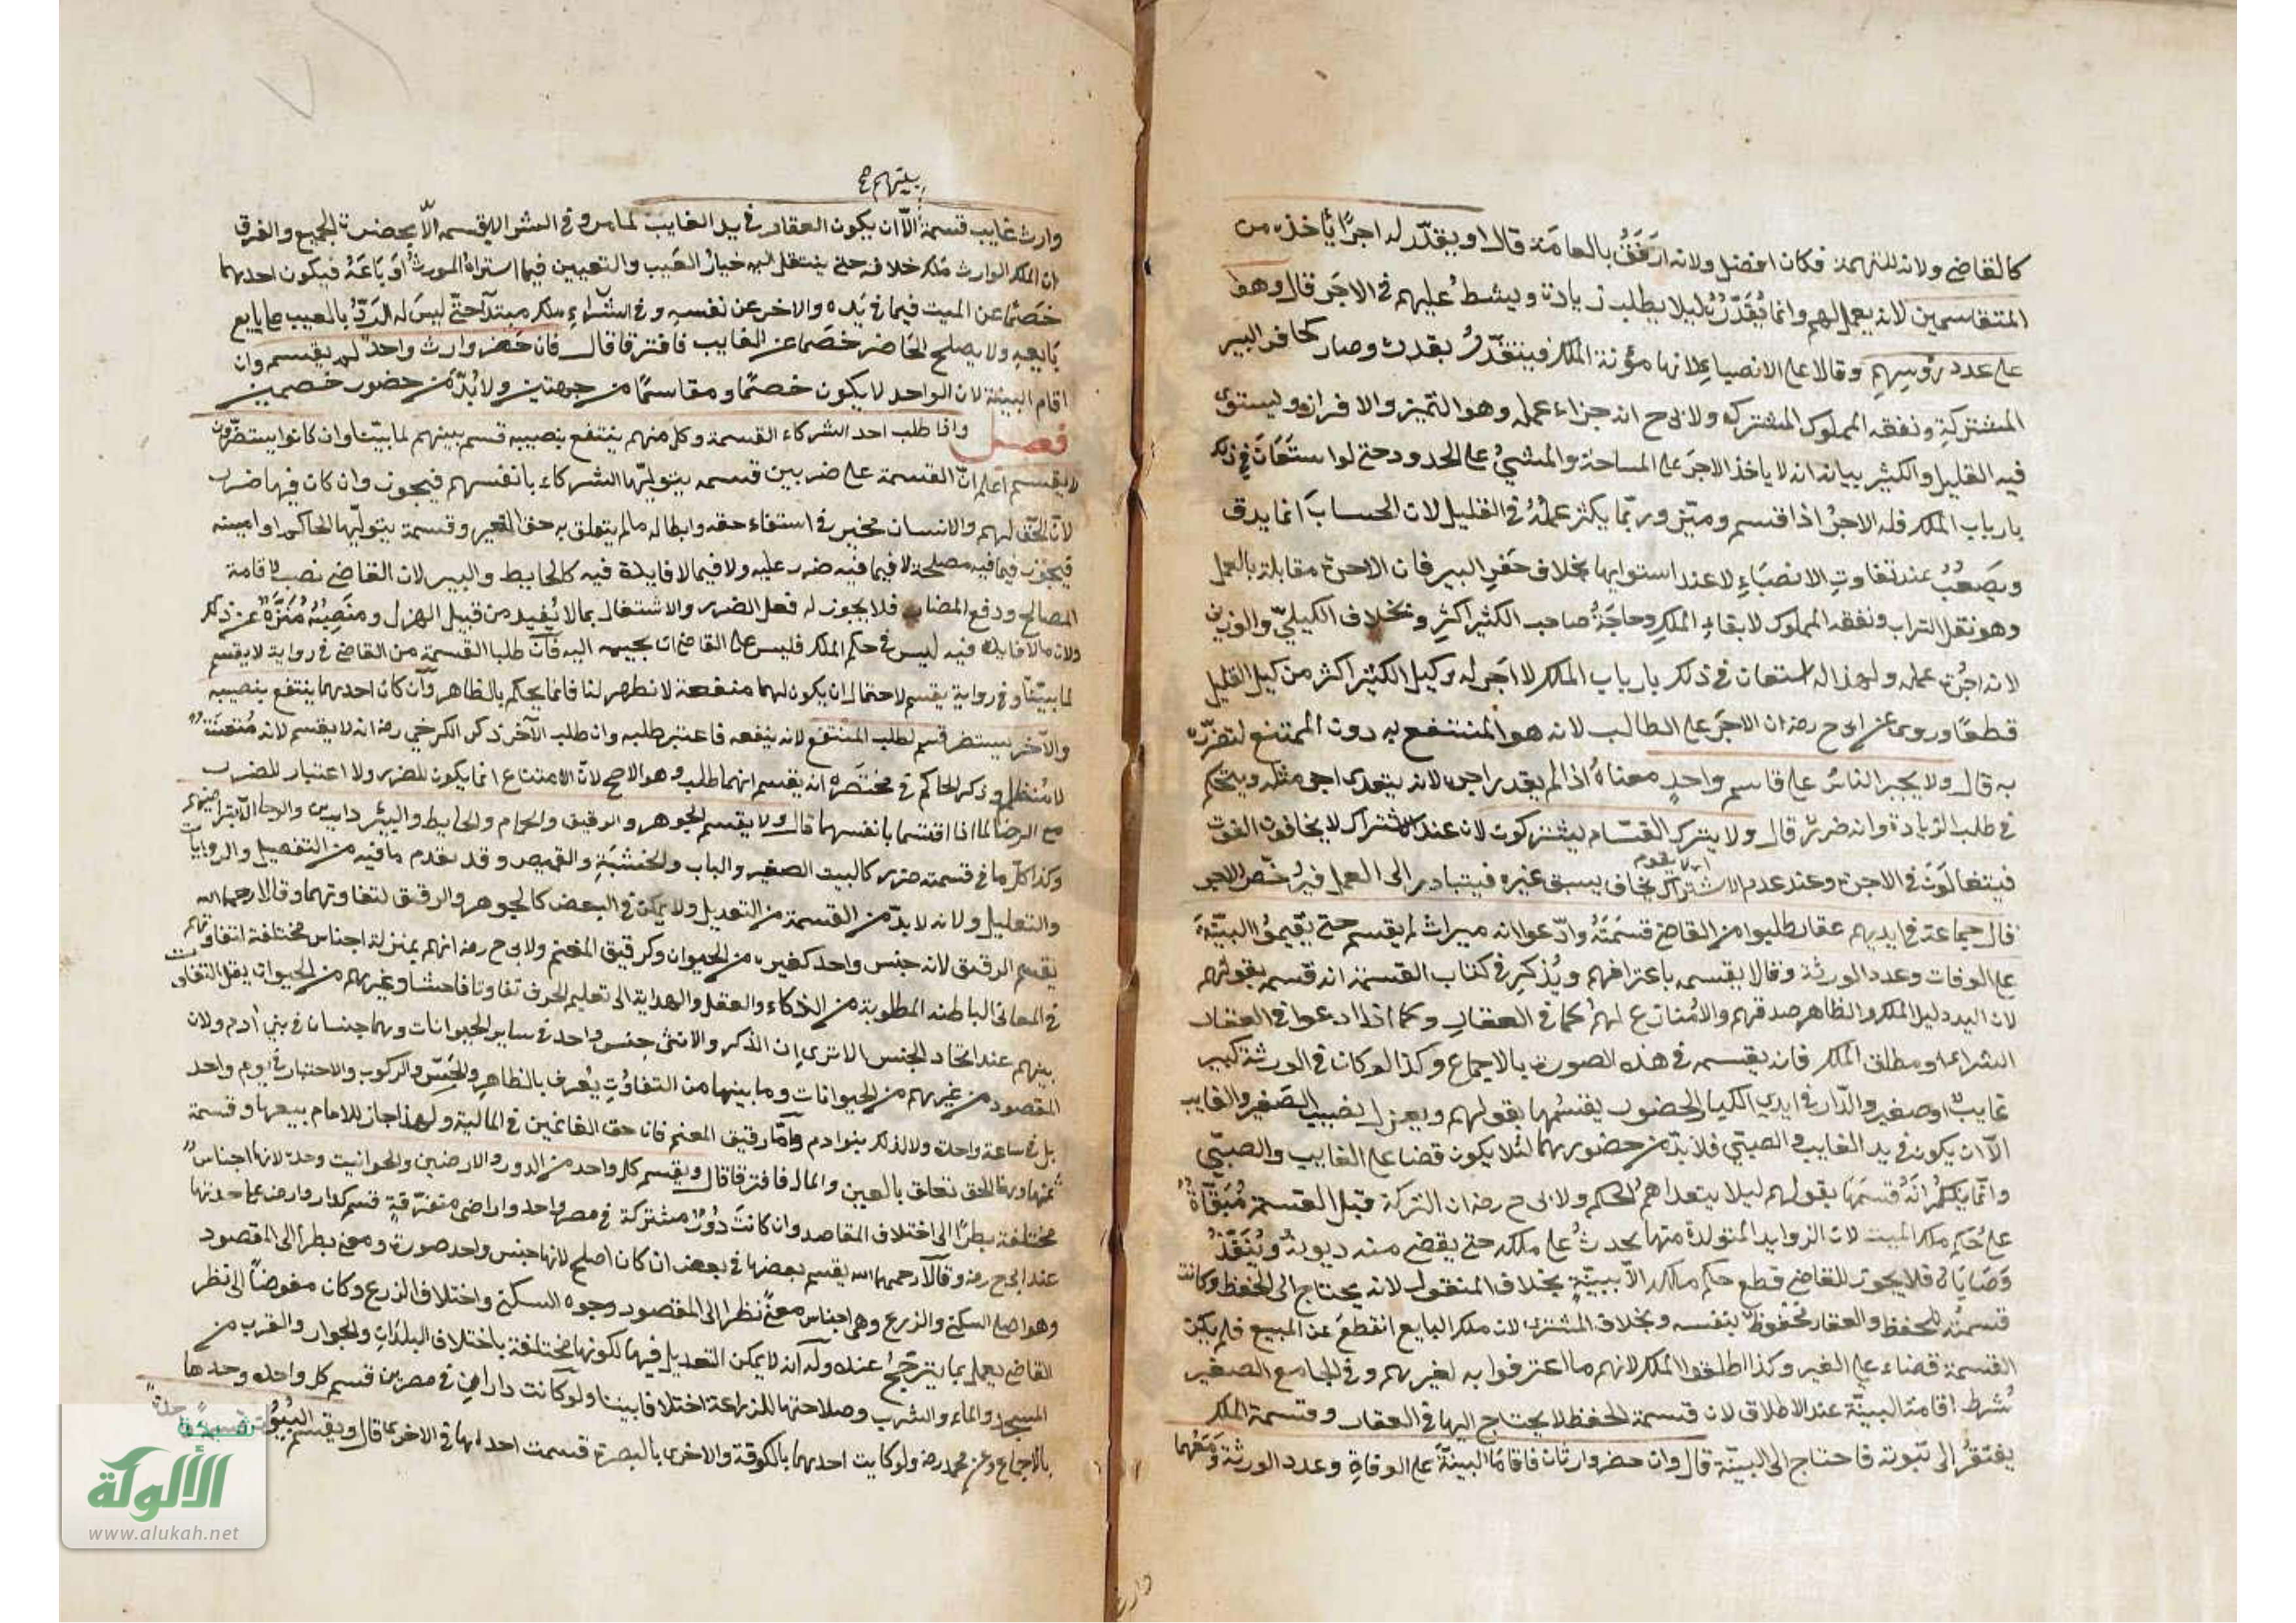 كالقاضي ولانه للتهمة فكان افضل ولانه ارفق بالعامة قال او يقدّر له اجرًا يأخذه من
المتقاسمين لانه يعمل لهم وانما يُقدّر ليلا يطلب زيادة ويشط عليهم في الاجر قال وهو
على عدد رؤسهم وقالا على الانصباء لانها مؤنة الملك فيتقدّر بقدره وصار كحافر البير
المشتركة ونفقة المملوك المشترك ولابي ح انه جزاء عمله وهو التميز والافراز ويستوي
فيه القليل والكثير بيانه انه لا ياخذ الاجر على المساحة والمشي على الحدود حتى لو استعان في ذلك
بارباب الملك فله الاجر اذا قسم وميّز وربّما يكثر عمله في القليل لان الحساب انما يدق
ويصعب عند تفاوت الانصباء لا عند استوايها بخلاف حفر البير فان الاجرة مقابلة بالعمل
وهو نقل التراب ونفقة المملوك لابقاء الملك وحاجة صاحب الكثير اكثر وبخلاف الكيلي والوزني
لانه اجرة عمله ولهذا له استعان في ذلك بارباب الملك لا اجر له وكيل الكثير اكثر من كيل القليل
قطعًا وروى عن ابي ح رضه ان الاجر على الطالب لانه هو المنتفع به دون الممتنع لتضرّره
به قال ولا يجبر الناس على قاسم واحد معناه اذا لم يقدر اجره لانه يتعدى اجر مثله ويتحكم
في طلب الزيادة وانه ضرر قال ولا يترك القسّام يشتركون لان عند الاشتراك لا يخافون الفوت
فيتغالون في الاجرة وعند عدم الاشتراك يخاف يسبق غيره فيتبادر الى العمل فيرخّص الاجر
قال جماعة في ايديهم عقار طلبوا من القاضي قسمته وادّعوا انه ميراث لم يقسم حتى يقيموا البيّنة
على الوفات وعدد الورثة وقالا يقسمه باعترافهم ويذكر في كتاب القسمة انه قسمه بقولهم
لان اليد دليل الملك والظاهر صدقهم والا منازع لهم كما في العقار وكما اذا ادعوا في العقار
الشراء او مطلق الملك فانه يقسمه في هذه الصورة بالاجماع وكذا لو كان في الورثة كبير
غايب او صغير والدّار في ايدي الكبار الحضور يقسمها بقولهم ويعزل نصيب الصغير والغايب
الّا ان يكون في يد الغايب والصبيّ فلا بدّ من حضورهما لئلا يكون قضا على الغايب والصبيّ
وانّما يذكر انه قسمها بقولهم ليلا يتعداهم الحكم ولابي ح رضه ان التركة قبل القسمة مُبقّاة
على حكم ملك الميت لان الزوايد المتولدة منها يحدث على ملكه حتى يقضي منه ديونه وينفّذ
وصاياه فلا يجوز للقاضي قطع حكم ملكه الا ببيّنة بخلاف المنقول لانه يحتاج الى الحفظ وكانت
قسمته للحفظ والعقار محفوظ بنفسه وبخلاف المشترى لان ملك البايع انقطع عن المبيع فلم يكن
القسمة قضاء على الغير وكذا اطلقوا الملك لانهم ما اعترفوا به لغيرهم وفي الجامع الصغير
شرط اقامة البيّنة عند الاطلاق لان قسمة الحفظ لا يحتاج اليها في العقار وقسمة الملك
يفتقر الى ثبوته فاحتاج الى البيّنة قال وان حضر وارثان فاقاما البيّنة على الوفاة وعدد الورثة ومعهما
وارث غايب قسمه الّا ان يكون العقار في يد الغايب لما مر وفي الشرا لا يقسمه الّا بحضرة الجميع والفرق
ان الملك الوارث ملك خلافه حتى ينتقل اليه خيار العيب والتعيين فيما اشتراه المورث او باعه فيكون احدهما
خصمًا عن الميت فيما في يده والاخر عن نفسه وفي الشراء ملك مبتدأ حتى ليس له الردّ بالعيب على بايع
بايعه ولا يصلح الحاضر خصمًا عن الغايب فافترقا قال فان حضر وارث واحد لم يقسم وان
اقام البيّنة لان الواحد لا يكون خصمًا ومقاسمًا من جهتين ولا بُدّ من حضور خصمين
فصل واذا طلب احد الشركاء القسمة وكل منهم ينتفع بنصيبه قسم بينهم لما بيّنا وان كانوا يستضرّون
لا يقسم اعلم انّ القسمة على ضربين قسمه يتوليّها الشركاء بانفسهم فيجوز وان كان فيها ضرر
لانّ الحق لهم والانسان مخير في استفاء حقه وابطاله ما لم يتعلق به حق الغير وقسمة يتوليّها الحاكم او امينه
فيجوز فيما فيه مصلحة لا فيما فيه ضرر عليه ولا فيما لا فايدة فيه كالحايط والبير لان القاضي نصب لاقامة
المصالح ودفع المضار فلا يجوز له فعل الضرر والاشتغال بما لا يُفيد من قبيل الهزل ومنصبه مُنزّه عن ذلك
ولان ما لا فايدة فيه ليس في حكم الملك فليس على القاضي ان يجيبه اليه فان طلبا القسمة من القاضي في رواية لا يقسم
لما بيّنا وفي رواية يقسم لاحتمال ان يكون لهما منفعة لا تظهر لنا فانما يحكم بالظاهر وان كان احدهما ينتفع بنصيبه
والآخر يستضر قسم لطلب المنتفع لانه ينفعه فاعتبر طلبه وان طلب الآخر ذكر الكرخي رضه انه لا يقسم لانه مُتعنّت
لا مُتظلم وذكر الحاكم في مختصره ان يقسم ايهما طلب وهو الاصح لانّ الامتناع انما يكون للضرر ولا اعتبار للضرر
مع الرضا لما اذا اقتسما بانفسهما قال ولا يقسم الجوهر والرقيق والحمام والحايط والبئر دارين والرحا الّا بتراضيهم
وكذا كلّ ما في قسمته ضرر كالبيت الصغير والباب والخشبة والقميص وقد تقدم ما فيه من التفصيل والروايات
والتعليل ولانه لا بدّ من القسمة من التعديل ولا يمكن في البعض كالجوهر والرقيق لتفاوتهما وقالا رحمهما الله
يقسم الرقيق لانه جنس واحد كغيره من الحيوان وكرقيق المغنم ولابي ح رضه انهم بمنزلة اجناس مختلفة لتفاوتهم
في المعاني الباطنه المطلوبة من الذكاء والعقل والهداية الى تعليم الحرف تفاوتا فاحشا وغيرهم من الحيوان يقل التفاوت
بينهم عند اتحاد الجنس الا ترى ان الذكر والانثى جنس واحد في ساير الحيوانات وهما جنسان في بني ادم ولان
المقصود من غيرهم من الحيوانات وما بينها من التفاوت يُعرف بالظاهر والجسّ والركوب والاختبار في يوم واحد
بل في ساعة واحدة ولا كذلك بنو ادم وامّا رقيق المغنم فان حق الغانمين في المالية ولهذا جاز للامام بيعها وقسمة
ثمنها وهنا الحق تعلق بالعين والمال فافترقا قال ويقسم كل واحد من الدور والارضين والحوانيت وحدة لانها اجناس
مختلفة نظرًا الى اختلاف المقاصد وان كانت دُور مشتركة في مصر واحد واراضي متفرّقة قسم كل دار وارض على حدتها
عند ابي ح رضه وقالا رحمهما الله يقسم بعضها في بعض ان كان اصلح لانها جنس واحد صورة ومعنى نظرًا الى المقصود
وهو اصل السكنى والزرع وهي اجناس معنىً نظرا الى المقصود وجوه السكنى واختلاف الزرع وكان مفوضًا الى نظر
القاضي يعمل بما يترجّح عنده وله انه لا يمكن التعديل فيها لكونها مختلفة باختلاف البلدان والجوار والقرب من
المسجد والماء والشرب وصلاحتها للزراعة اختلافا بيّنا ولو كانت داران في مصرين قسم كل واحده وحدها
بالاجماع وعن محمد رضه ولو كانت احديهما بالكوفة والاخرى بالبصرة قسمت احداهما في الاخرى قال ويقسم البيوت
شبكة
الألوكة
www.alukah.net